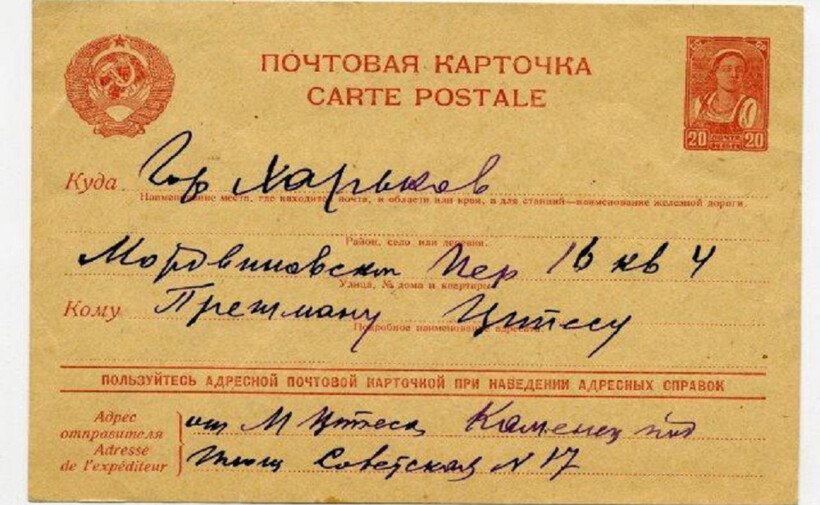 ПОЧТОВАЯ КАРТОЧКА
CARTE POSTALE
20 ПОЧТА 20
Куда Гор Харьков
Наименование места, где находится почта, и области или края, а для станций—наименование железной дороги.
Район, село или деревня.
Мордвиновский Пер 16 кв 4
Улица, № дома и квартиры
Кому Цитесу
Подробное наименование адресата
ПОЛЬЗУЙТЕСЬ АДРЕСНОЙ ПОЧТОВОЙ КАРТОЧКОЙ ПРИ НАВЕДЕНИИ АДРЕСНЫХ СПРАВОК
Адрес отправителя
Adresse de l'expéditeur
от М Цитеса Каменец под
Советская N 17